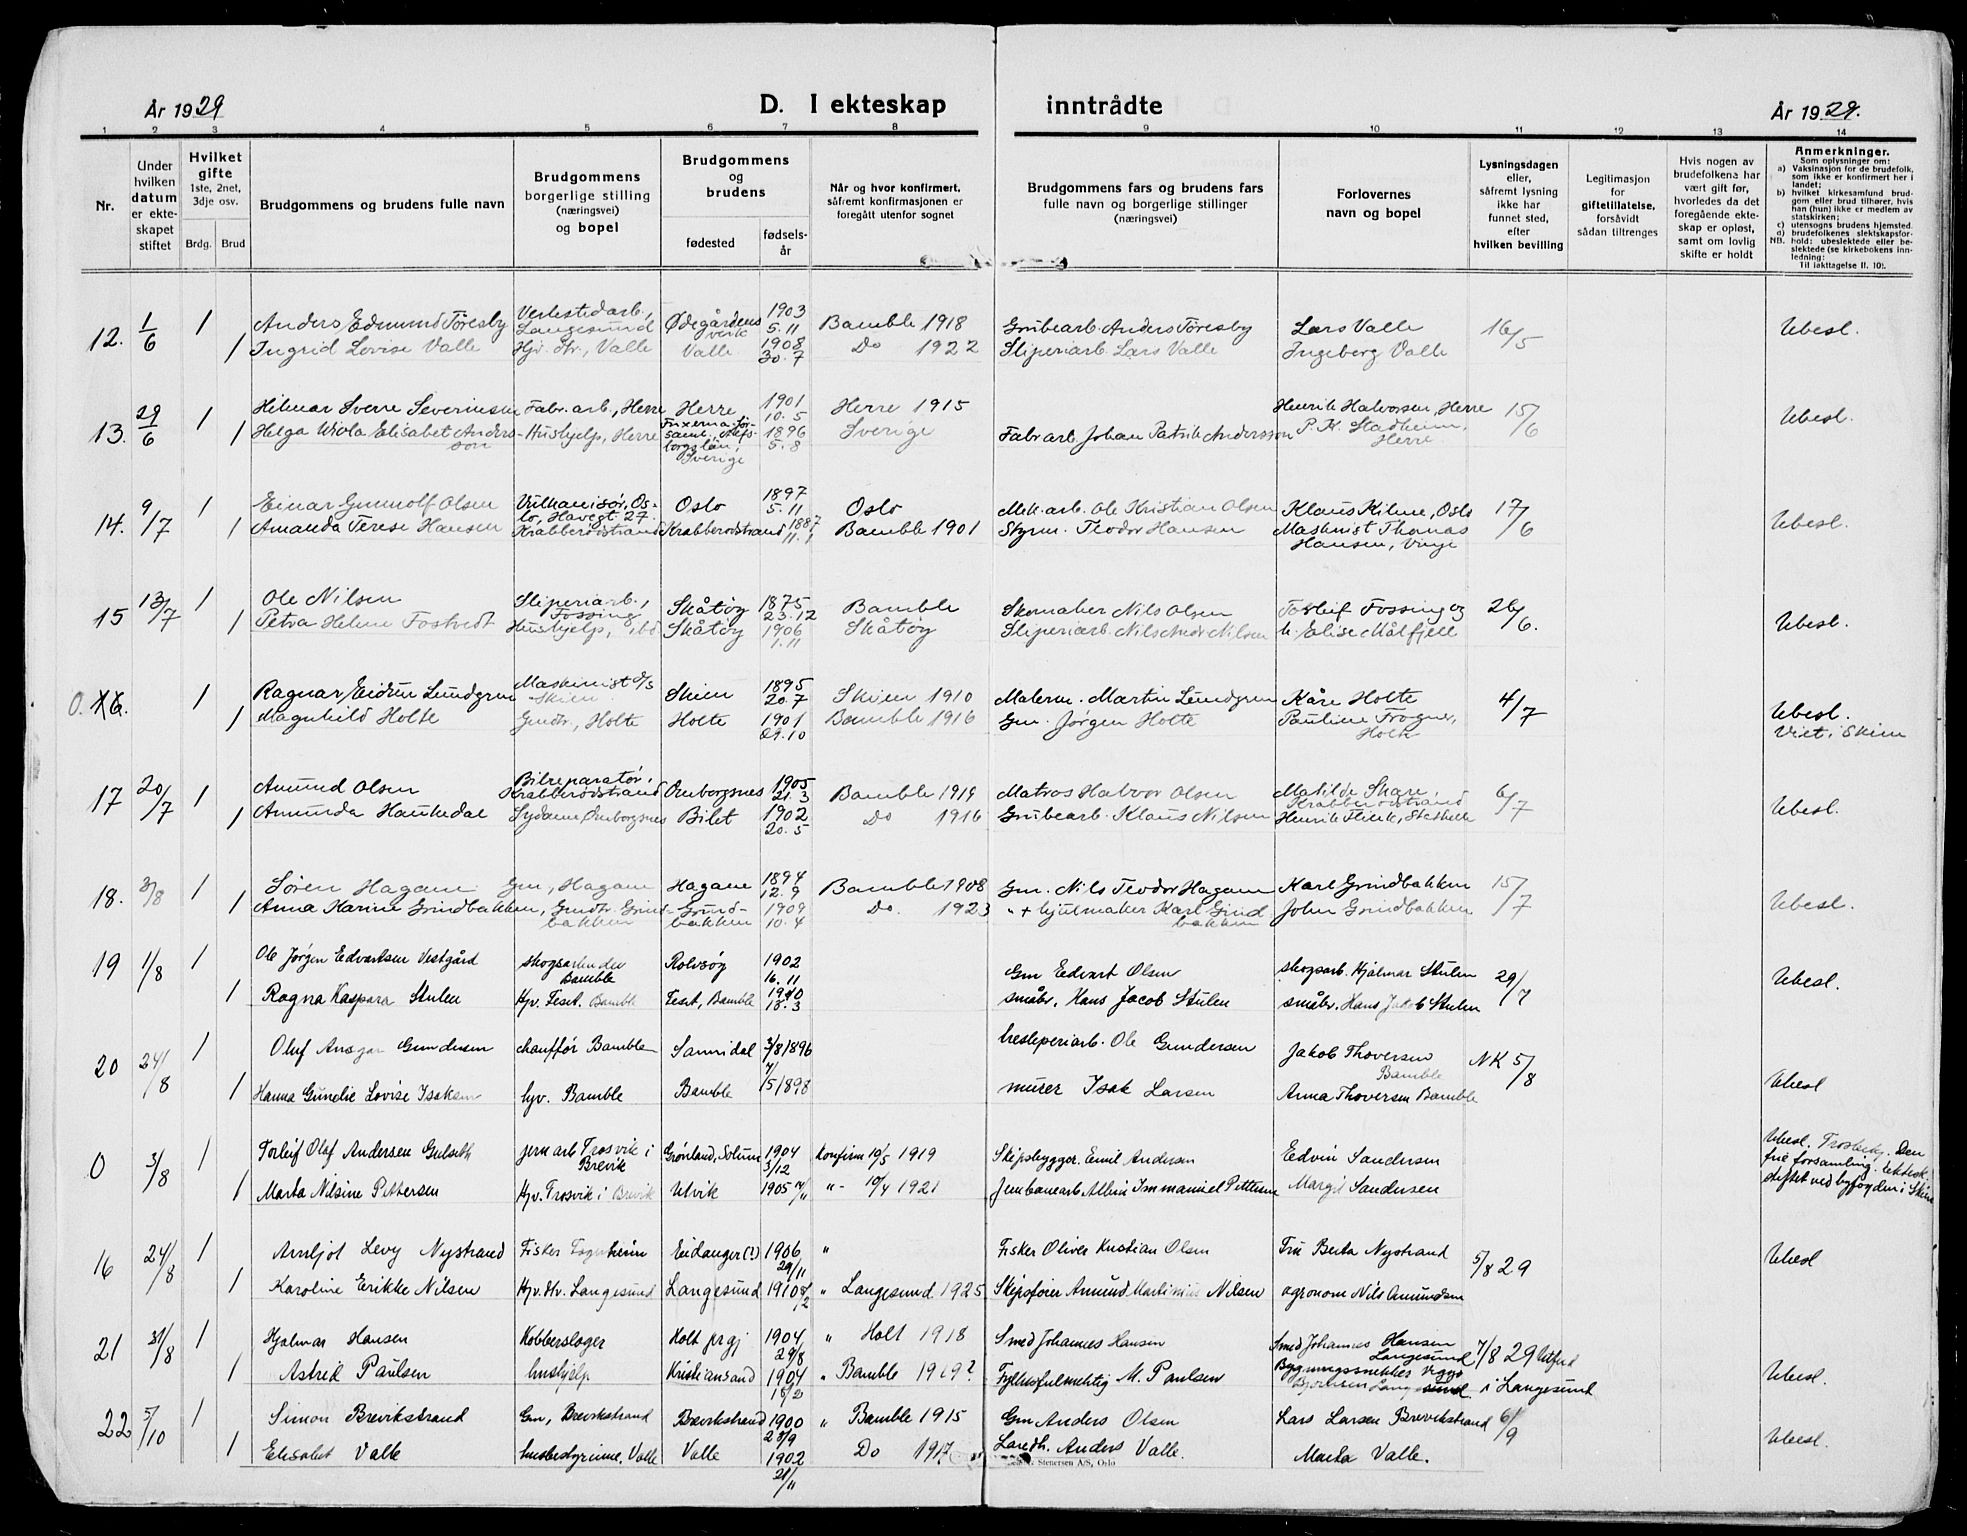 År 1929
D. I ekteskap inntrådte
År 1929.
1 2 3 4 5 6 7 8 9 10 11 12 13 14
Nr.
Under hvilken datum er ekteskapet stiftet
Hvilket gifte
1ste, 2net, 3dje osv.
Brdg. Brud
Brudgommens og brudens fulle navn
Brudgommens borgerlige stilling (næringsvei) og bopel
Brudgommens og brudens
fødested
fødselsår
Når og hvor konfirmert, såfremt konfirmasjonen er foregått utenfor sognet
Brudgommens fars og brudens fars fulle navn og borgerlige stillinger (næringsvei)
Forlovernes navn og bopel
Lysningsdagen eller, såfremt lysning ikke har funnet sted, efter hvilken bevilling
Legitimasjon for giftetillatelse, forsåvidt sådan tiltrenges
Hvis nogen av brudefolkena har vært gift før, hvorledes da det foregående ekteskap er opløst, samt om lovlig skifte er holdt
Anmerkninger.
Som oplysninger om:
a) Vaksinasjon for de brudefolk, som ikke er konfirmert her i landet;
b) hvilket kirkesamfund brudgom eller brud tilhører, hvis han (hun) ikke er medlem av statskirken;
c) utensogns brudens hjemsted.
d) brudefolkenes slektskapsforhold: ubeslektede eller beslektede (se kirkebokens innledning:
NB. Til iakttagelse II. 10).
12. 1/6 1 Anders Edmund Töresby Verkstedarb., Langesund Ødegårdens verk 1903 5.11 Bamble 1918 Grubearb. Anders Töresby Lars Valle 16/5 Ubesl.
1 Ingrid Lovise Valle Hjv. dtr., Valle Valle 1908 30.7 Do 1922 Sliperiarb. Lars Valle Ingeborg Valle
13. 29/6 1 Hilmar Sverre Severinsen Fabr. arb., Herre Herre 1901 10.5 Herre 1915 Henrik Halvorsen, Herre 15/6 Ubesl.
Helga Viola Elisabet Andersson Hushjelp, Herre Sverige 1896 5.8 Sverige Fabr arb. Johan Patrik Andersson P. K. Stadheim, Herre
14. 9/7 1 Einar Gunnolf Olsen Vulkanisør, Oslo, Havegt. 27. Oslo 1897 5.11 Oslo Mek. arb. Ole Kristian Olsen Klaus Kilme, Oslo 17/6 Ubesl.
1 Amanda Terese Hansen Krabberødstrand Krabberødstrand 1887 11.1 Bamble 1901 Styrm. Teodor Hansen Maskinist Thomas Hansen, Vinje
15 13/7 1 Ole Nilsen Sliperiarb., Fossing Skåtøy 1875 23.12 Bamble Skomaker Nils Olsen Torleif Fossing og 26/6. Ubesl.
1 Petra Helene Fostvedt Hushjelp, ibd Skåtøy 1906 1.11 Skåtøy Sliperiarb. Nils Nilsen h. Elise Målfjell
0. 16. 1 Ragnar Eidsen Lundgren Maskinist d/s Skien Skien 1895 20.7 Skien 1910 Malerm. Martin Lundgren Kåre Holte 4/7 Ubesl. Viet i Skien
1 Magnhild Holte Gmdtr., Holte Holte 1901 29.10 Bamble 1916 Gm. Jørgen Holte Pauline Frogner, Holte
17 20/7 1 Amund Olsen Bilreparatør, Krabberødstrand Ormborgsnes 1905 21.3 Bamble 1919 Matros Halvor Olsen Matilde Skare, Krabberødstrand 6/7 Ubesl.
1 Amunda Haukedal Sydame Ormborgsnes Bilet 1902 20.5 Do 1916 Grubearb. Klaus Nilsen Henrik Flink, Stathelle
18. 3/8 1 Søren Hagane Gm., Hagane Hagane 1894 12.9 Bamble 1908 Gm. Nils Teodor Hagane Karl Grindbakken 15/7 Ubesl.
1 Anna Karine Grindbakken, Gmdtr. Grindbakken Grindbakken 1909 10.4 Do. 1923 " + hjulmaker Karl Grindbakken John Grindbakken
19 1/8 1 Ole Jørgen Edvartsen Vestgård skogsarbeider Bamble Rolvsøy 1902 16.11 Gm Edvart Olsen skogsarb. Hjalmar Stulen 29/7 Ubesl.
1 Ragna Kaspara Stulen Hjv. Feset. Bamble Feset, Bamble 1910 18.3 småbr. Hans Jacob Stulen småbr. Hans Jakob Stulen
20 24/8 1 Oluf Ansgar Gundersen chauffør Bamble Sannidal 3/8 1896 tresliperiarb. Ole Gundersen Jakob Thoversen Bamble NK 5/8 Ubesl
1 Hanna Gundie Lovise Isaksen hjv. Bamble Bamble 7/5 1898 murer Isak Larsen Anna Thoversen Bamble
0 3/8 1 Torleif Olaf Andersen Gulseth jern arb Trosvik i Brevik Grønland, Solum 1904 3/12 Konfirm 10/5 1919 Skipsbygger. Emil Andersen Edvin Sandersen Ubesl. Trosbekj. Den frie forsamling. Ektesk. stiftet ved byfogden i Skien
1 Marta Nilsine Pettersen Hjv. Trosvik i Brevik Ulvik 1905 14/11 "- 10/4 1921 Jernbanearb Albin Immanuel Pettersen Margit Sandersen
16 24/8 1 Arnljot Levy Nystrand Fisker Fagerheim Eidanger (?) 1906 29/11 " Fisker Oliver Kristian Olsen Fru Berta Nystrand 5/8 29 Ubesl
1 Karoline Erikke Nilsen Hjv. dtr. Langesund Langesund 1910 8/2 " Langesund 1925 Skipsfører Amund Martinius Nilsen agronom Nils Amundsen
21 31/8 1 Hjalmar Hansen Kobberslager Holt prgj 1904 29/8 " Holt 1918 Smed Johannes Hansen Smed Johannes Hansen Langesund 7/8 29 utferd i Langesund
1 Astrid Paulsen hushjelp Kristiansand 1904 15/2 " Bamble 1919? Fylkesfulmektig M. Paulsen Bygningssnekker Viggo Langesund Ubesl.
22 5/10 1 Simon Brevikstrand Gm, Brevikstrand Brevikstrand 1900 23/9 " Bamble 1915 Gm Anders Olsen Lars Larsen Brevikstrand 6/9 Ubesl.
1 Elisabet Valle husbestyrerinne, Valle Valle 1902 21/11 Do 1917 Landh. Anders Valle. Marta Valle.
Stenersen A/S, Oslo